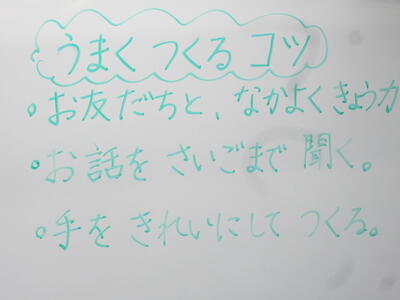 うまくつくるコツ
。お友だちと、なかよくきょう力
。お話をさいごまで聞く。
。手をきれいにしてつくる。